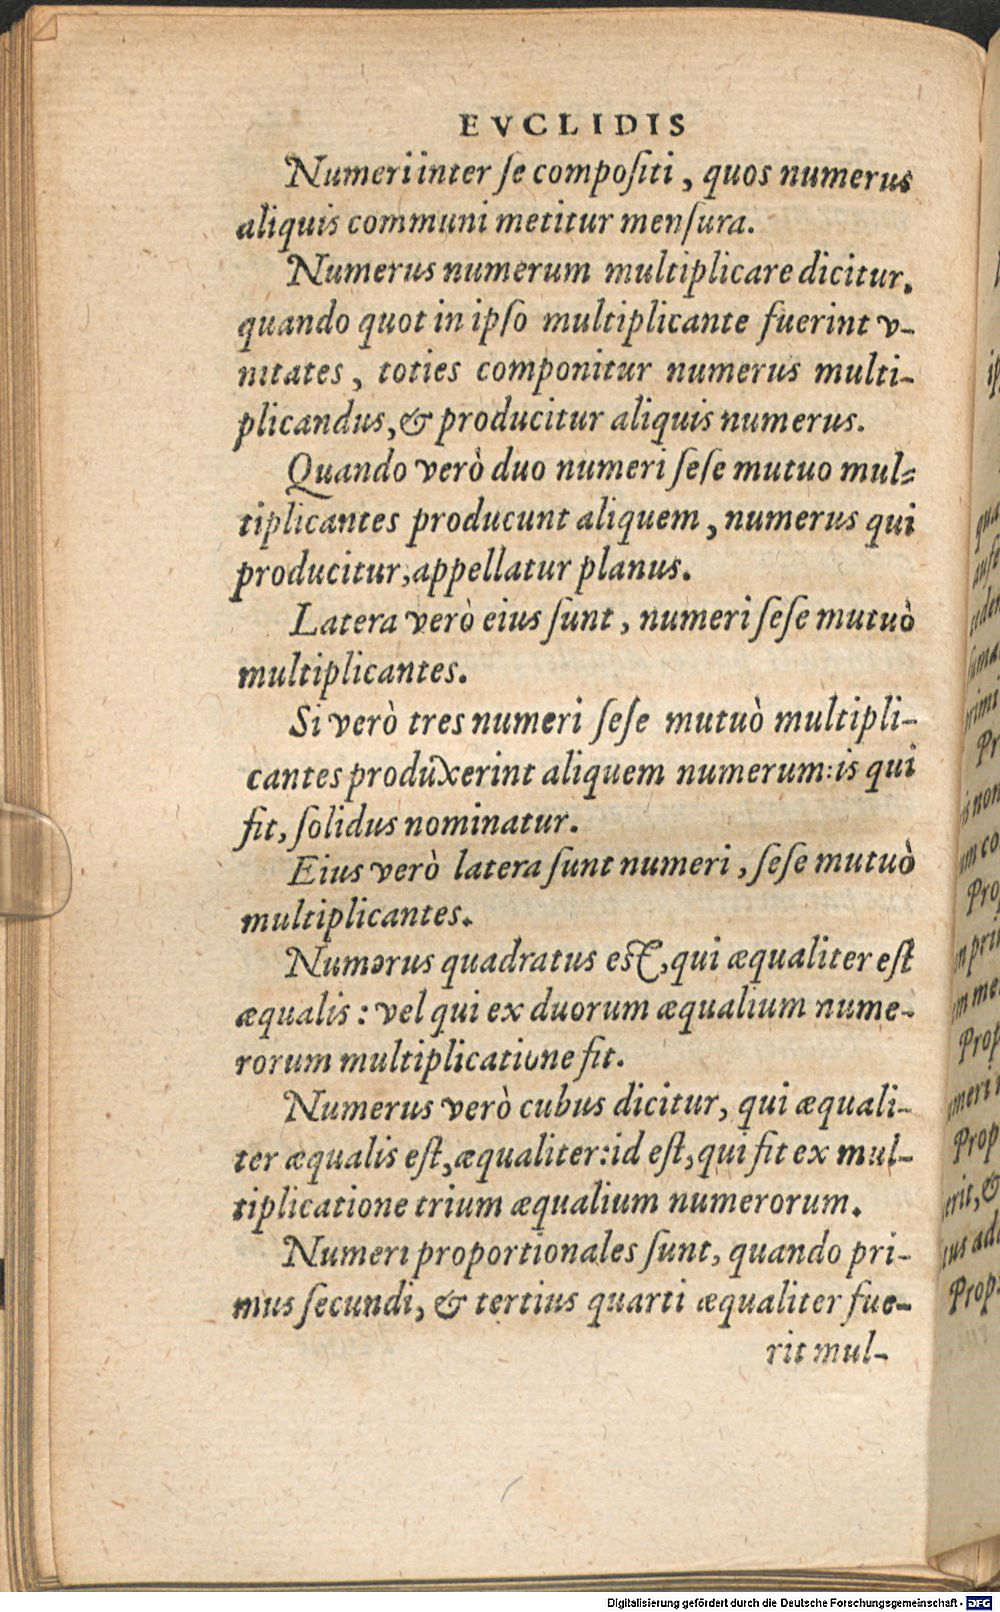 EVCLIDIS
Numeri inter ſe compoſiti, quos numerus
aliquis communi metitur menſura.
Numerus numerum multiplicare dicitur,
quando quot in ipſo multiplicante fuerint v-
nitates, toties componitur numerus multi-
plicandus, & producitur aliquis numerus.
Quando verò duo numeri ſeſe mutuo mul-
tiplicantes producunt aliquem, numerus qui
producitur, appellatur planus.
Latera verò eius ſunt, numeri ſeſe mutuò
multiplicantes.
Si verò tres numeri ſeſe mutuò multipli-
cantes produxerint aliquem numerum: is qui
fit, ſolidus nominatur.
Eius verò latera ſunt numeri, ſeſe mutuò
multiplicantes.
Numerus quadratus est, qui æqualiter eſt
æqualis: vel qui ex duorum æqualium nume-
rorum multiplicatione fit.
Numerus verò cubus dicitur, qui æquali-
ter æqualis eſt, æqualiter: id eſt, qui fit ex mul-
tiplicatione trium æqualium numerorum.
Numeri proportionales ſunt, quando pri-
mus ſecundi, & tertius quarti æqualiter fue-
rit mul-
Digitalisierung gefördert durch die Deutsche Forschungsgemeinschaft - DFG